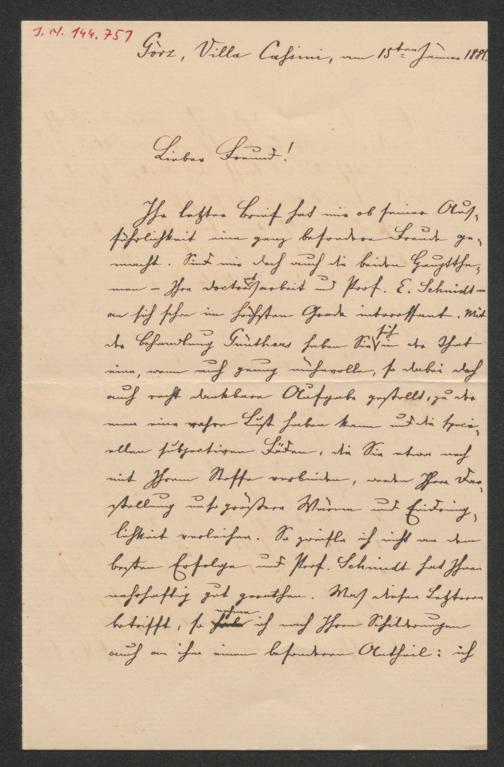 J. N. 144.751
Görz, Villa Cassini, am 15ten Jänner 1881.
Lieber Freund!
Ihr letzter Brief hat mir ob seiner Aus-
führlichkeit eine ganz besondere Freude ge-
macht. Sind mir doch auch die beiden Hauptthe-
men – Ihre Doctorsarbeit und Prof. E. Schmidt –
an sich schon im höchsten Grade interessant. Mit
der Behandlung Günthers haben Sie sich in der That
eine, wenn auch ganz mühevolle, so dabei doch
auch recht dankbare Aufgabe gestellt, zu der
man eine wahre Lust haben kann und die speci-
ellen subjectiven Fäden, die Sie etwa noch
mit Ihrem Stoffe verbinden, werden Ihrer Dar-
stellung nur größere Wärme und Eindring-
lichkeit verleihen. So zweifle ich nicht an dem
besten Erfolge und Prof. Schmidt hat Ihnen
wahrhaftig gut gerathen. Was diesen Letzteren
betrifft, so nehme ich nach Ihren Schilderungen
auch an ihm einen besonderen Antheil: ich